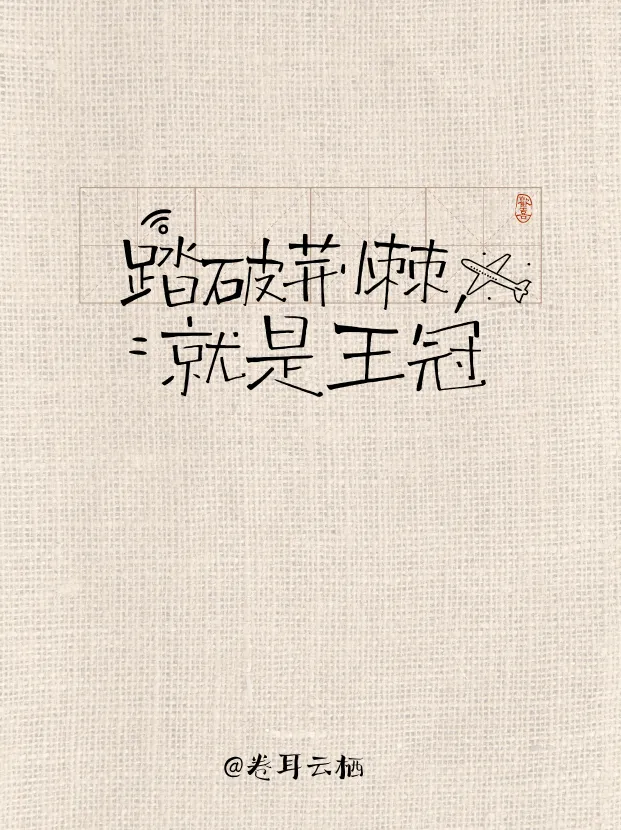 踏破荆棘,
就是王冠
@卷耳云栖